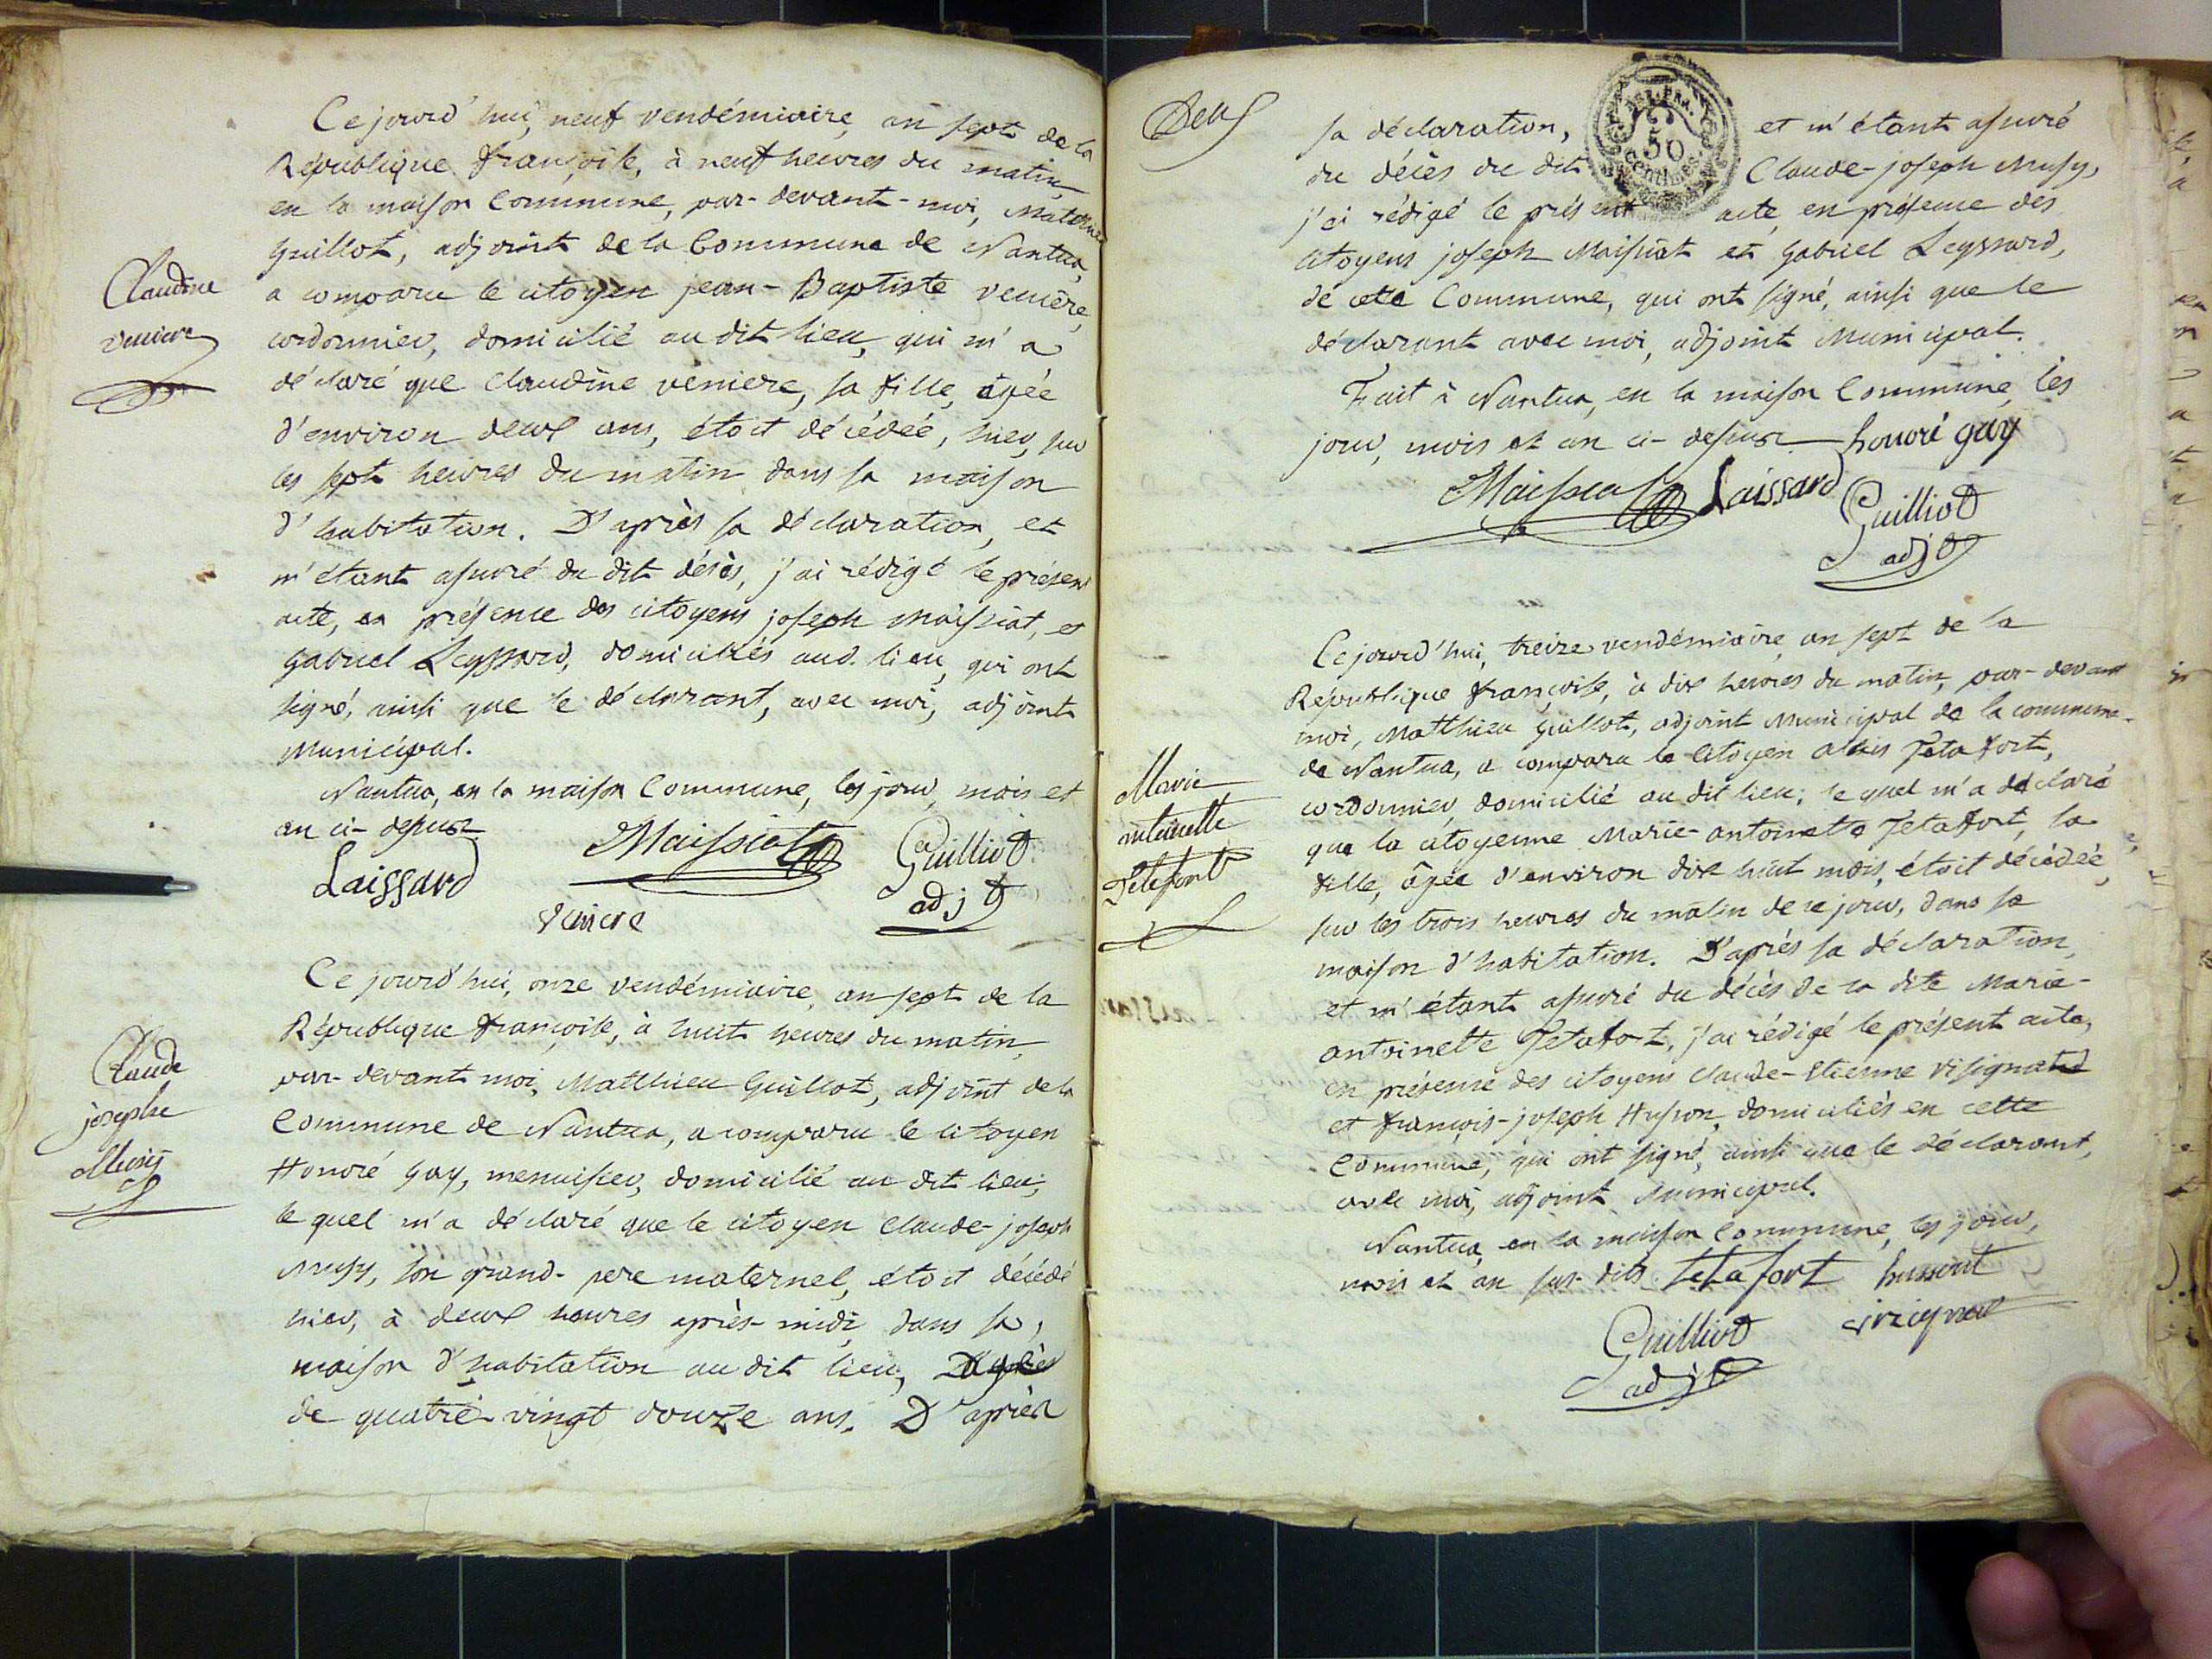 Ce jourd'hui, neuf vendémiaire, an sept de la
République françoise, à neuf heures du matin,
en la maison Commune, par-devant-moi,
Guillot, adjoint de la Commune de Nantua,
a comparu le citoyen jean-Baptiste veniere,
cordonnier, domicilié au dit lieu, qui m'a
déclaré que Claudine veniere, sa fille, âgée
d'environ deux ans, étoit décédée, hier, sur
les sept heures du matin dans sa maison
d'habitation. D'après sa déclaration, et
m'étant assuré du dit décès, j'ai rédigé le présent
acte, en présence des citoyens joseph Maissiat, et
Gabriel Leyssard, domiciliés aud. lieu, qui ont
signé, ainsi que le déclarant, avec moi, adjoint
Municipal.
Nantua, en la maison Commune, les jour, mois et
an ci-dessus
Laissard
Maissiat
Guilliot
adjt
veniere
Claudine
veniere
Ce jourd'hui, onze vendémiaire, an sept de la
République françoise, à huit heures du matin,
par-devant moi, Matthieu Guillot, adjoint de la
Commune de Nantua, a comparu le citoyen
Honoré Gay, menuisier, domicilié au dit lieu,
le quel m'a déclaré que le citoyen Claude-joseph
Musy, son grand-pere maternel, étoit décédé
hier, à deux heures après-midi, dans sa
maison d'habitation au dit lieu,
de quatre-vingt douze ans. D'après
Claude
josephe
Musy
Deux
sa déclaration, et m'étant assuré
du décès du dit Claude-joseph Musy,
j'ai rédigé le présent acte, en présence des
citoyens joseph Maissiat et Gabriel Leyssard,
de cette Commune, qui ont signé, ainsi que le
déclarant avec moi, adjoint Municipal.
Fait à Nantua, en la maison Commune, les
jour, mois et an ci-dessus honoré gay
Maissiat Laissard
Guilliot
adjt
50
centimes
Ce jourd'hui, treize vendémiaire, an sept de la
République françoise, à dix heures du matin, par-devant
moi, Matthieu Guillot, adjoint Municipal de la commune
de Nantua, a comparu le Citoyen Tetafort,
cordonnier, domicilié au dit lieu; le quel m'a déclaré
que la citoyenne Marie-antoinette Tetafort, sa
fille, âgée d'environ dix huit mois, étoit décédée,
sur les trois heures du matin de ce jour, dans sa
maison d'habitation. D'après sa déclaration,
et m'étant assuré du décès de la dite Marie-
antoinette Tetafort, j'ai rédigé le présent acte,
en présence des citoyens Claude-Etienne
et françois-joseph Husson, domiciliés en cette
Commune, qui ont signé, ainsi que le déclarant,
avec moi, adjoint Municipal.
Nantua, en la maison Commune, les jour,
mois et an sus-dits. tetafort hussont
Guilliot
adjt
Marie
antoinette
Tetefort